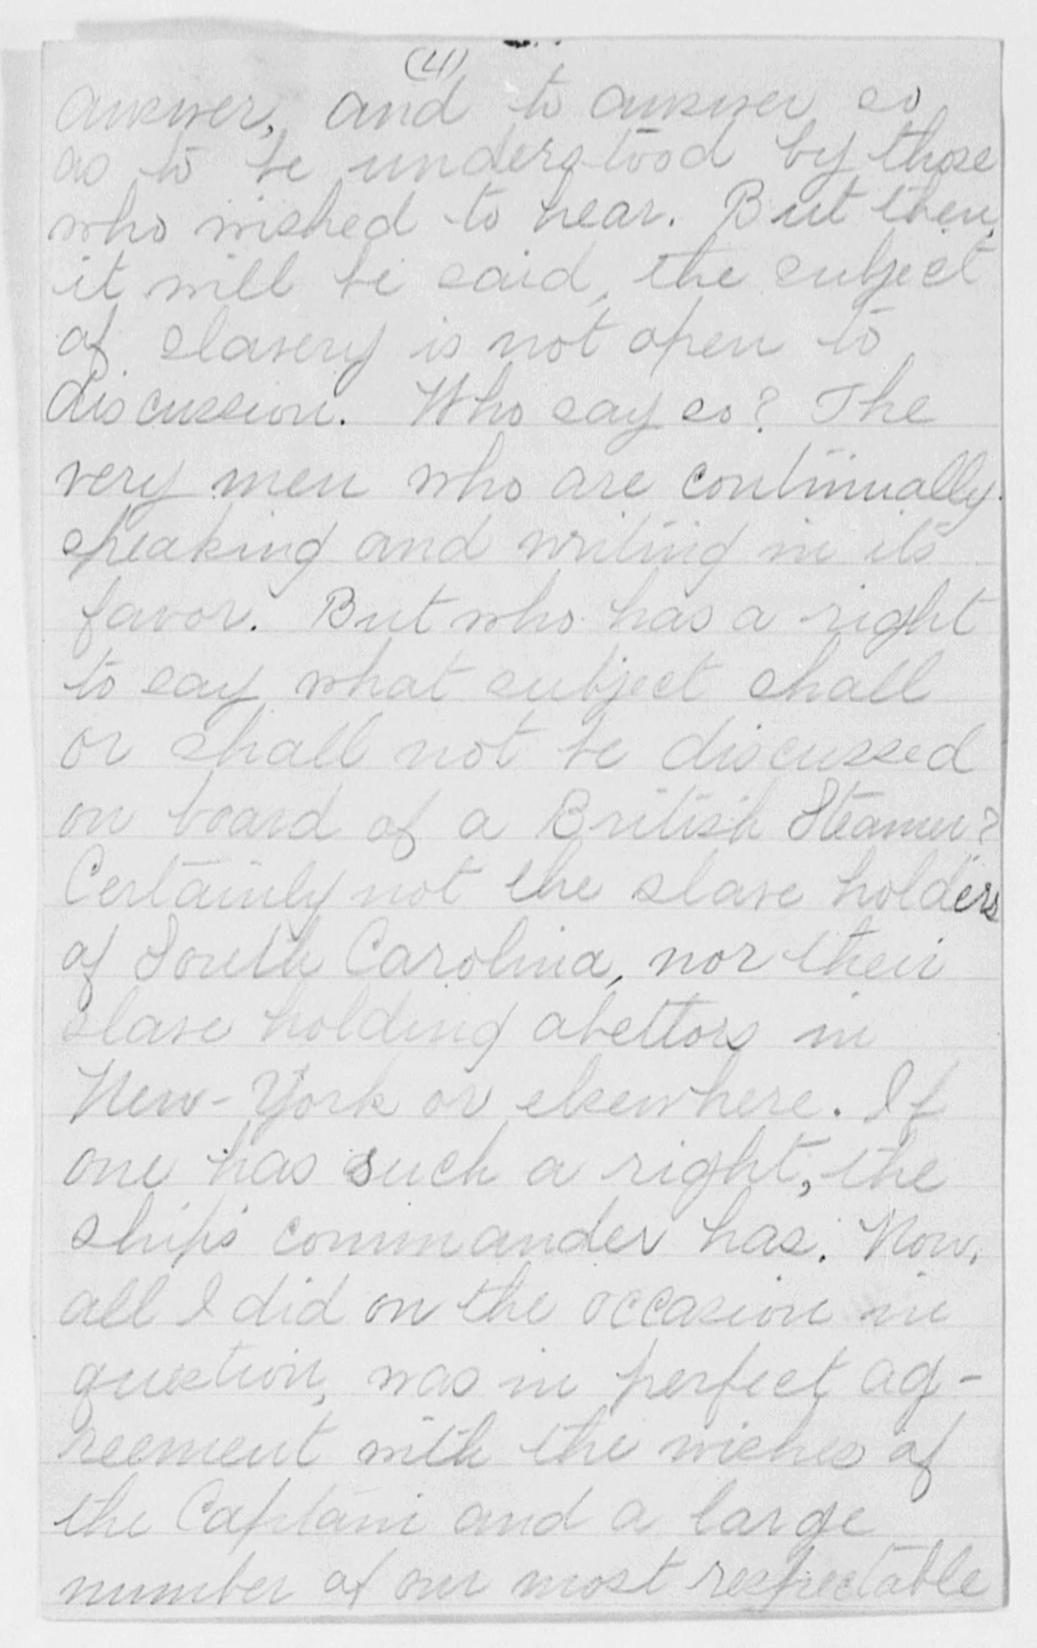 (4)
answer, and to answer so
as to be understood by those
who wished to hear. But then,
it will be said, the subject
of slavery is not open to
discussion. Who say so? The
very men who are continually
speaking and writing in its
favor. But who has a right
to say what subject shall
or shall not be discussed
on board of a British Steamer?
Certainly not the slave holders
of South Carolina, nor their
slave holding abettors in
New-York or elsewhere. If
one has such a right, the
ship's commander has. Now,
all I did on the occasion in
question, was in perfect ag-
reement with the wishes of
the Captain and a large
number of our most respectable